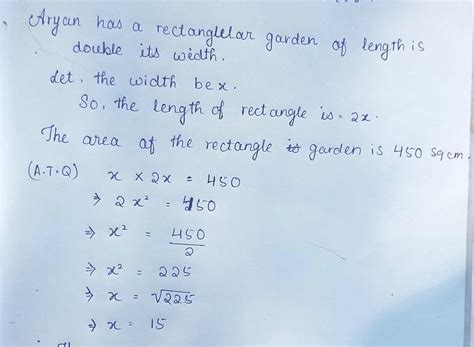 Aryan has a rectanglelar garden of length is
double its width.
Let, the width be x.
So, the length of rectangle is = 2x.
The area of the rectangle garden is 450 sq cm.
(A.T.Q) x × 2x = 450
⇒ 2x² = 450
⇒ x² = 450/2
⇒ x² = 225
⇒ x = √225
⇒ x = 15